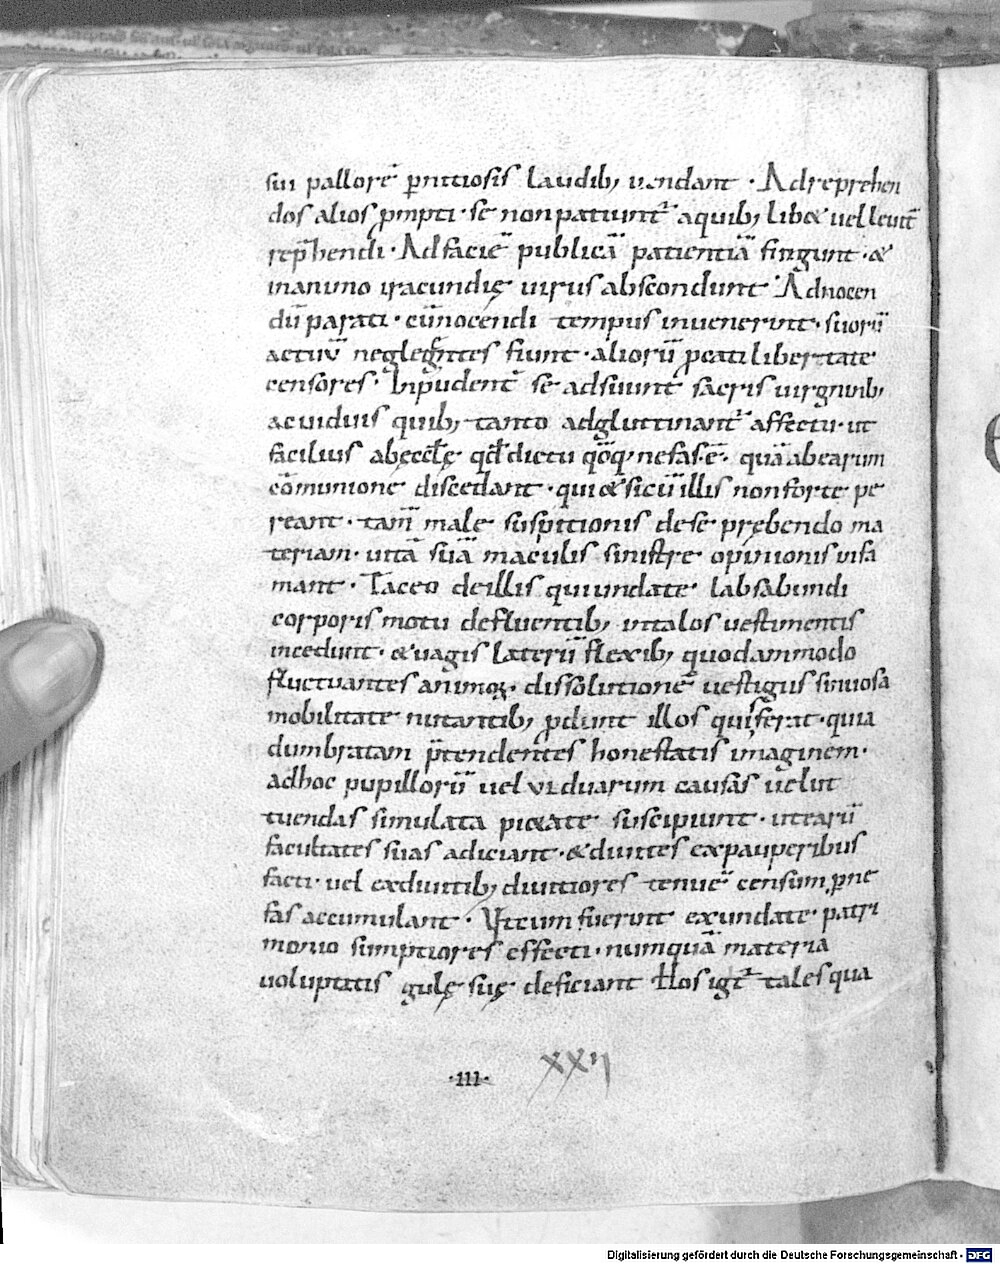 sui pallorē p̄nitiosis laudibꝫ uendant · Ad reprehen
dos alios ꝓmpti · se non patiunt̄ a quibꝫ libet uelleuit̄
rep̄hendi · Ad faciē publicā patientiā fingunt · &
in animo iracundię uirus abscondunt · Ad nocen
dū parati · cū nocendi tempus inuenerint · suorū
actuū neglegentes fiunt · aliorū pcati libertate
censores · Inpudent̄ se adsuunt sacris uirginibꝫ
ac uiduis quibꝫ tanto adgluttinant̄ affectu · ut
facilius ab ęcctę qd̄ dictu qoq nefas ē · quā abearum
cōmunione discedant · qui & si cū illis non forte pe
reant · tam̄ male suspitionis de se prębendo ma
teriam · uitā suā maculis sinistre opinionis infa
mant · Taceo de illis qui undate labsabundi
corporis motu defluentibꝫ in talos uestimentis
incedunt · & uagis laterū flexibꝫ quodammodo
fluctuantes animoꝝ · dissolutionē uestigiis sinuosa
mobilitate nutantibꝫ ꝓdunt illos quiferat · quia
dumbratam p̄tendentes honestatis imaginem ·
adhoc pupillorū uel viduarum causas uelut
tuendas simulata pietate suscipiunt · ut earū
facultates suas adiciant · & diuites ex pauperibus
facti · uel ex diuitibꝫ diuitiores tenuē censum p̄ ne
fas accumulant · Ut cum fuerint exundate patri
monio sumptiores effecti · numquā materia
voluptatis gulę suę deficiant Hos igt̄ tales qua
·III·
XXII
Digitalisierung gefördert durch die Deutsche Forschungsgemeinschaft - DFG